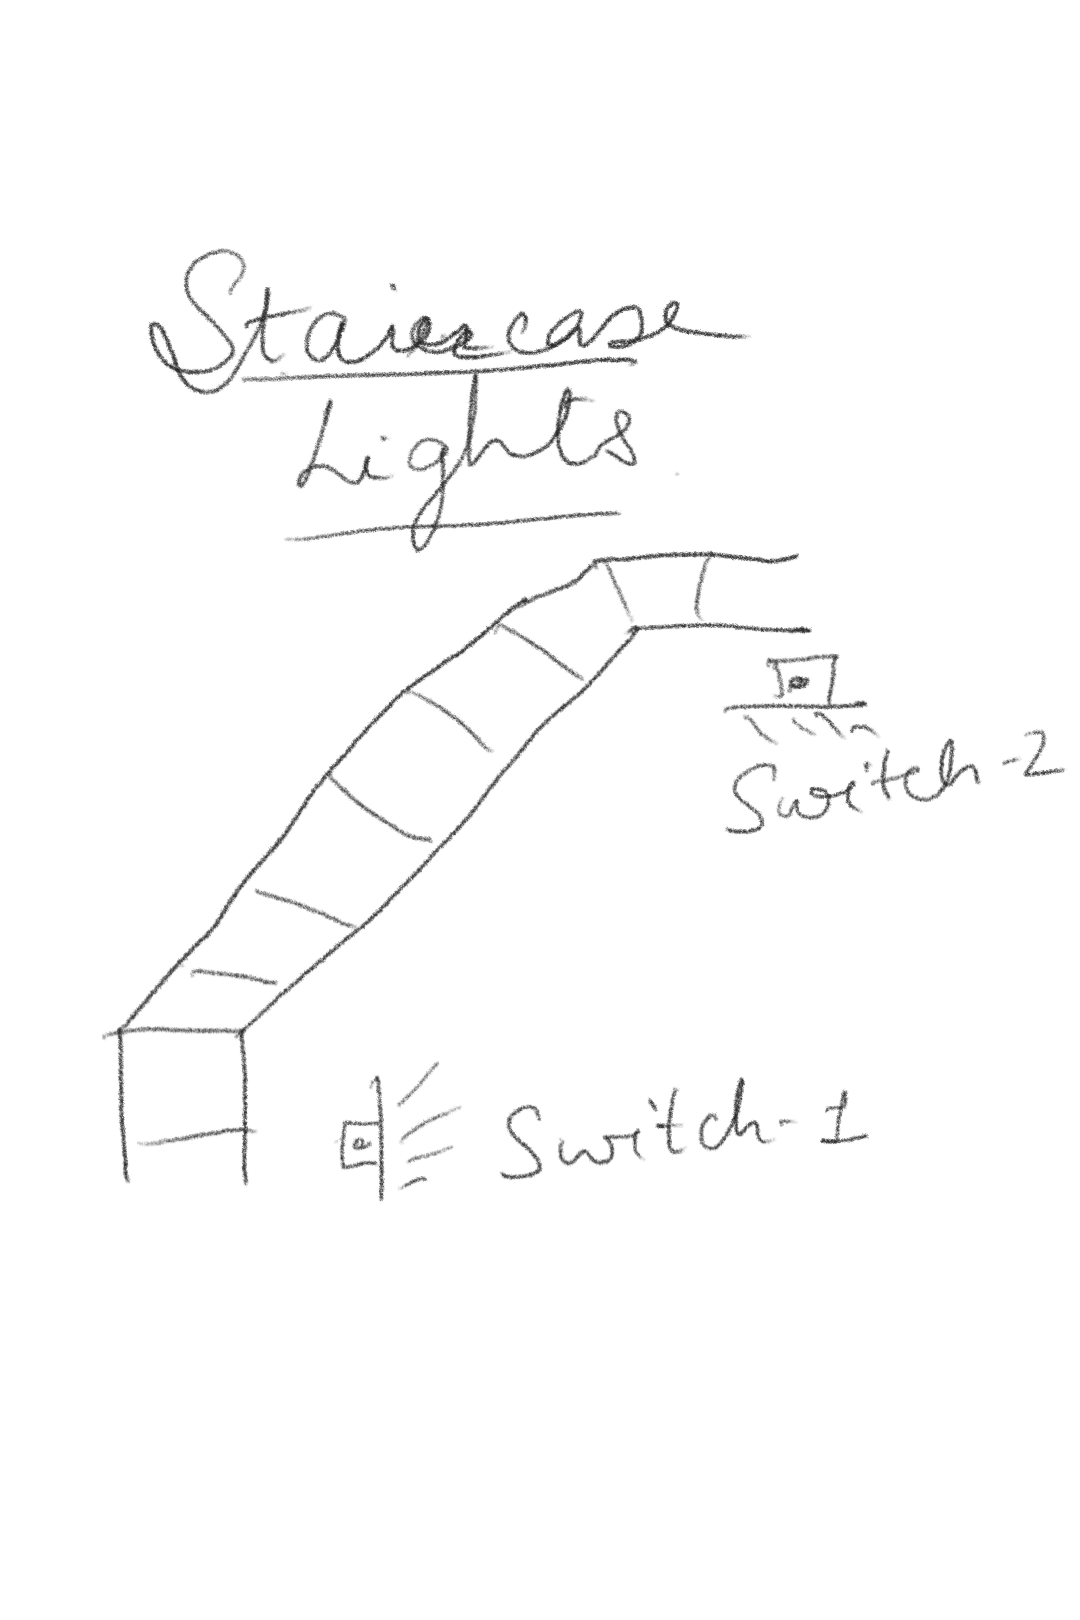 Staircase
Lights
Switch-2
Switch-1